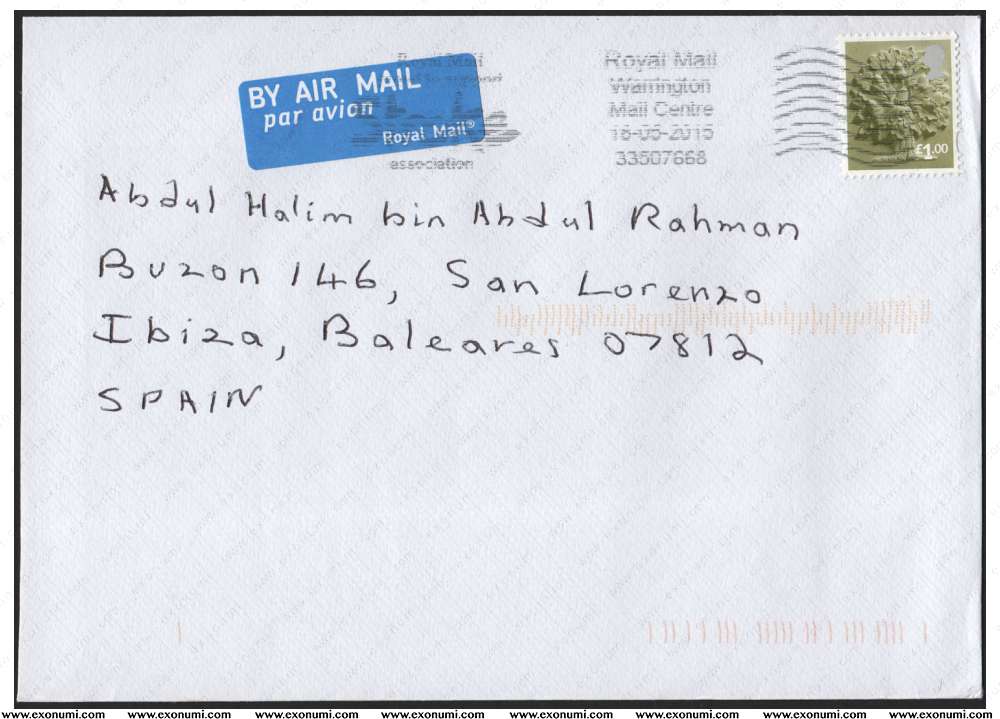 Royal Mail
association
BY AIR MAIL
par avion
Royal Mail®
Royal Mail
Warrington
Mail Centre
18-05-2015
33507668
£1.00
Abdul Halim bin Abdul Rahman
Buzon 146, San Lorenzo
Ibiza, Baleares 07812
SPAIN
www.exonumi.com www.exonumi.com www.exonumi.com www.exonumi.com www.exonumi.com www.exonumi.com www.exonumi.com www.exonumi.com